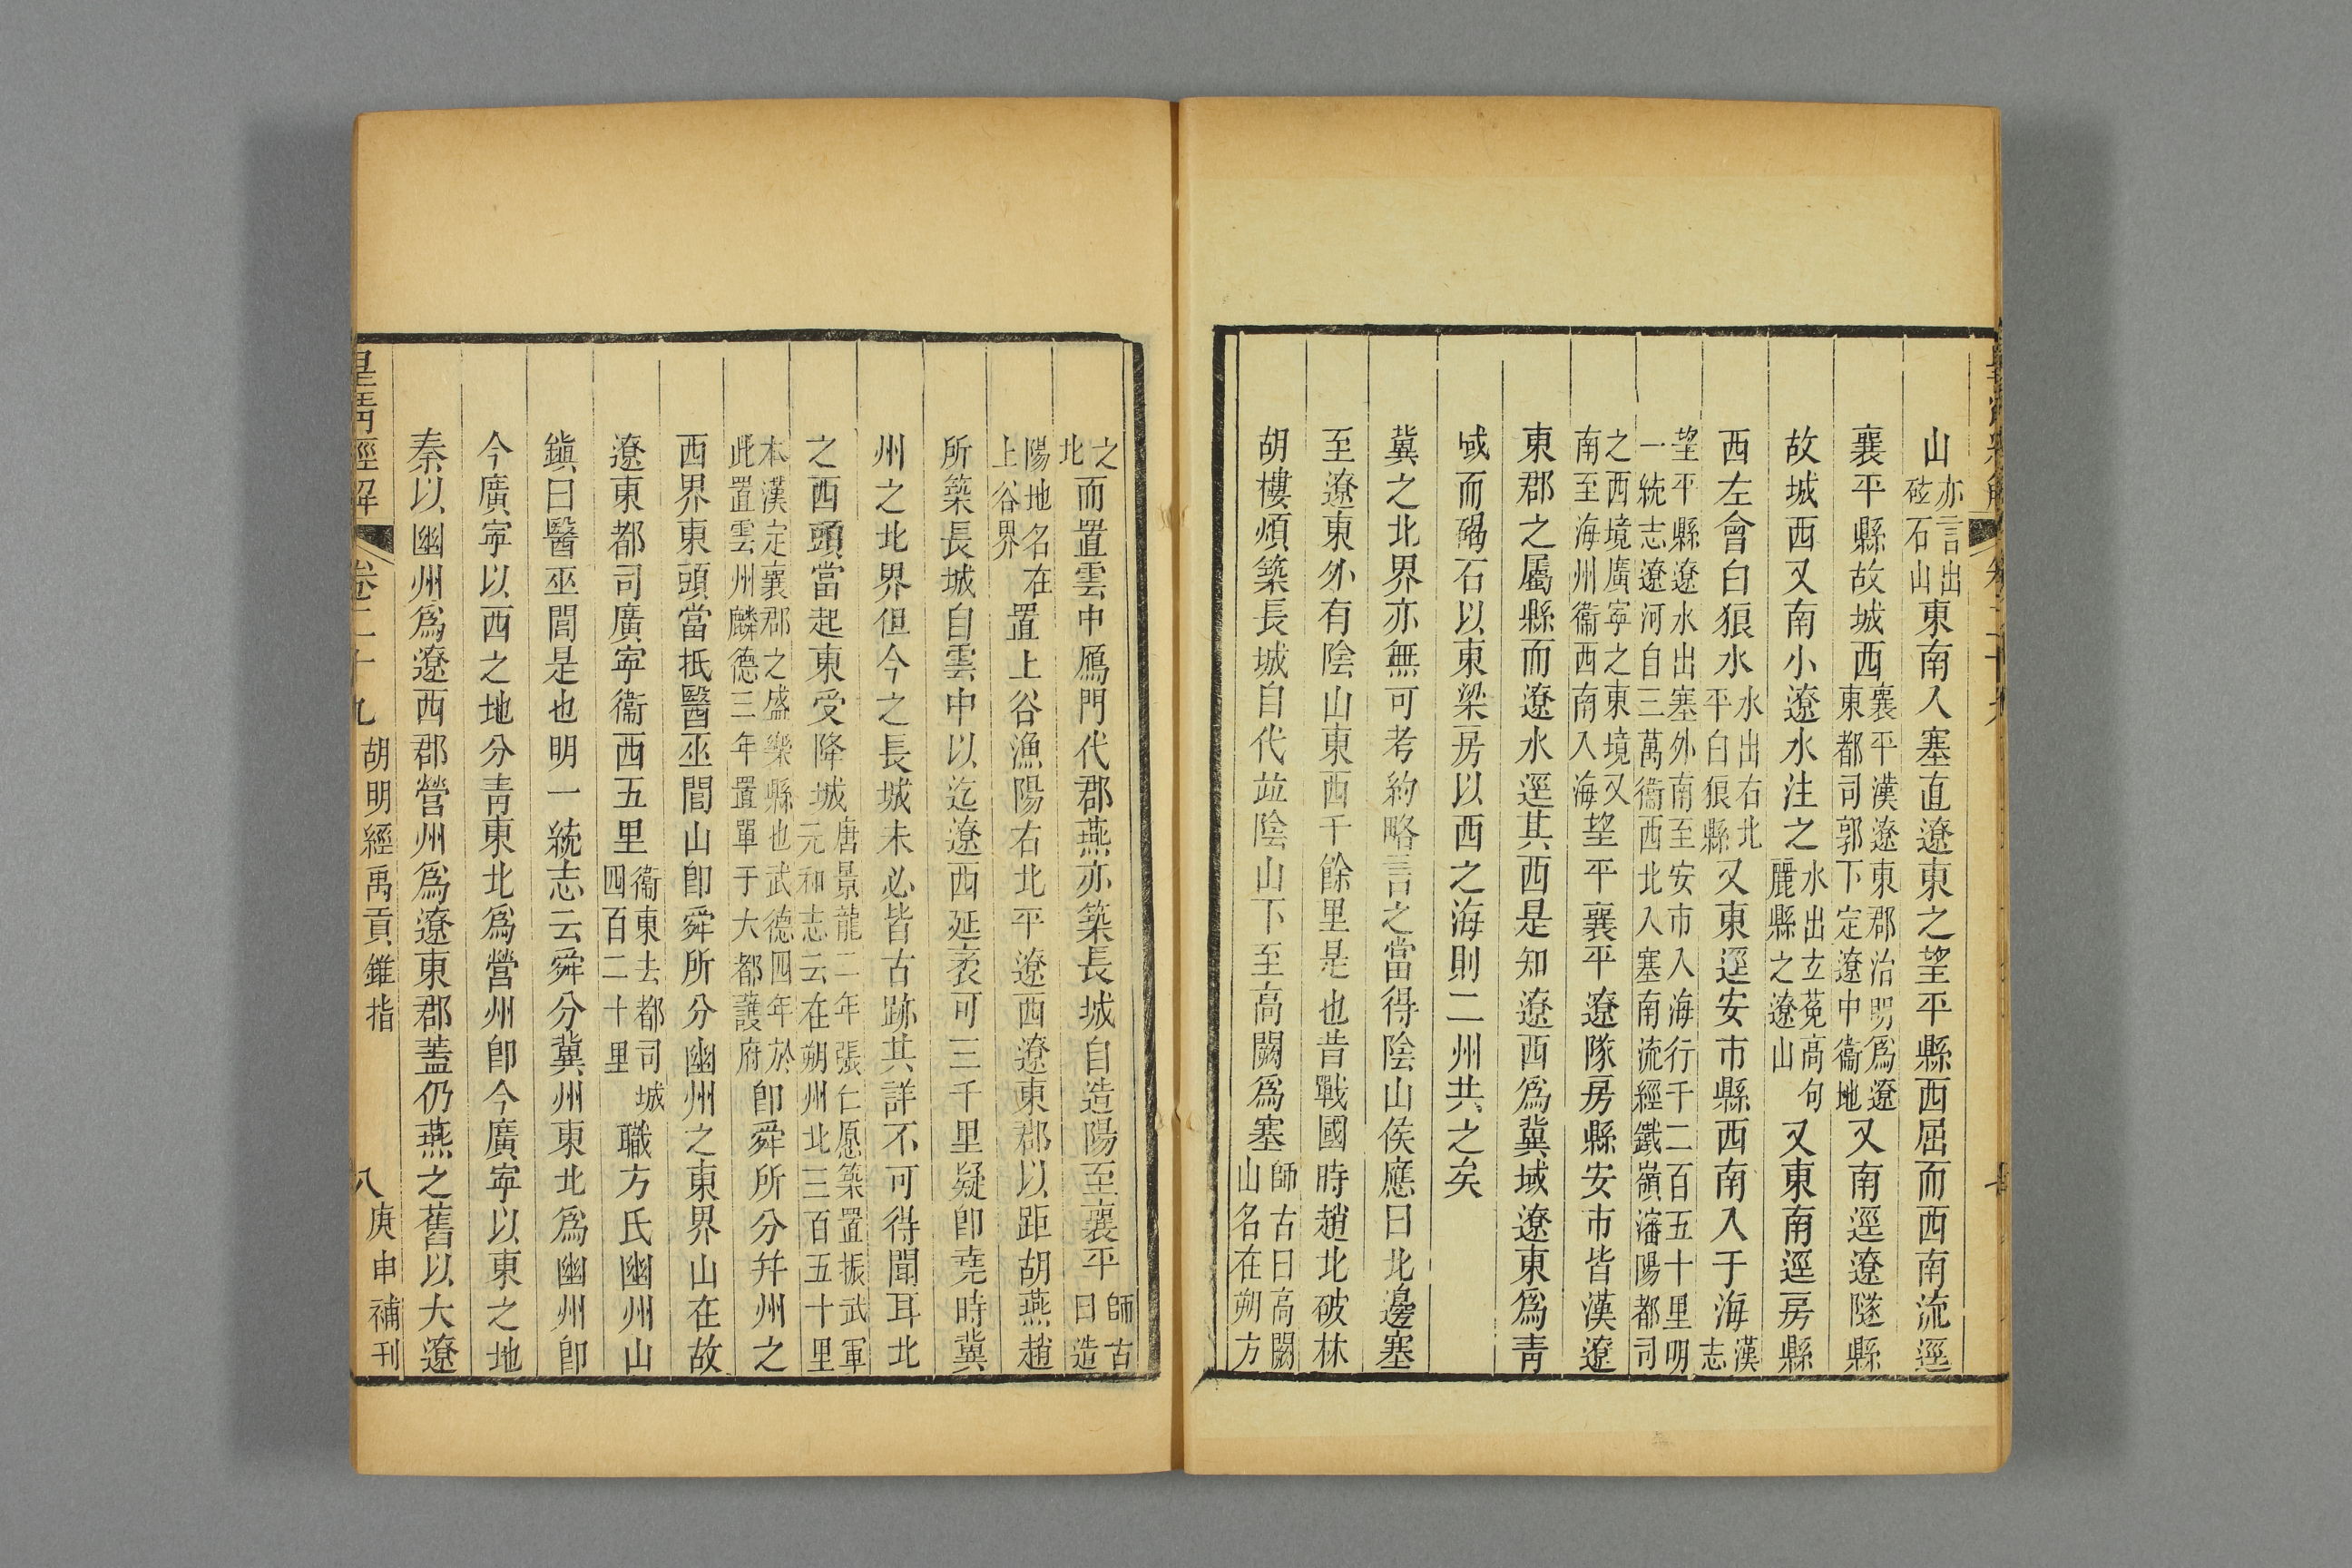 山亦言出砬石山東南入塞直遼東之望平縣西屈而西南流逕
襄平縣故城西襄平漢遼東郡治明爲遼東都司郭下定遼中衞地又南逕遼隧縣
故城西又南小遼水注之水出玄菟高句麗縣之遼山又東南逕房縣
西左會白狼水水出右北平白狼縣又東逕安市縣西南入于海漢志
望平縣遼水出塞外南至安市入海行千二百五十里明一統志遼河自三萬衞西北入塞南流經鐵嶺瀋陽都司
之西境廣寧之東境又南至海州衞西南入海望平襄平遼隊房縣安市皆漢遼
東郡之屬縣而遼水逕其西是知遼西爲冀域遼東爲靑
域而碣石以東梁房以西之海則二州共之矣
冀之北界亦無可考約略言之當得陰山侯應曰北邊塞
至遼東外有陰山東西千餘里是也昔戰國時趙北破林
胡樓煩築長城自代竝陰山下至高闕爲塞師古曰高闕山名在朔方
之北而置雲中鴈門代郡燕亦築長城自造陽至襄平師古曰造
陽地名在上谷界置上谷漁陽右北平遼西遼東郡以距胡燕趙
所築長城自雲中以迄遼西延袤可三千里疑卽堯時冀
州之北界但今之長城未必皆古跡其詳不可得聞耳北
之西頭當起東受降城唐景龍二年張仁愿築置振武軍元和志云在朔州北三百五十里
本漢定襄郡之盛樂縣也武德四年於此置雲州麟德三年置單于大都護府卽舜所分幷州之
西界東頭當抵醫巫閭山卽舜所分幽州之東界山在故
遼東都司廣寧衞西五里衞東去都司城四百二十里職方氏幽州山
鎭曰醫巫閭是也明一統志云舜分冀州東北爲幽州卽
今廣寧以西之地分靑東北爲營州卽今廣寧以東之地
秦以幽州爲遼西郡營州爲遼東郡蓋仍燕之舊以大遼
皇淸經解 卷二十九 胡明經禹貢錐指 八 庚申補刊